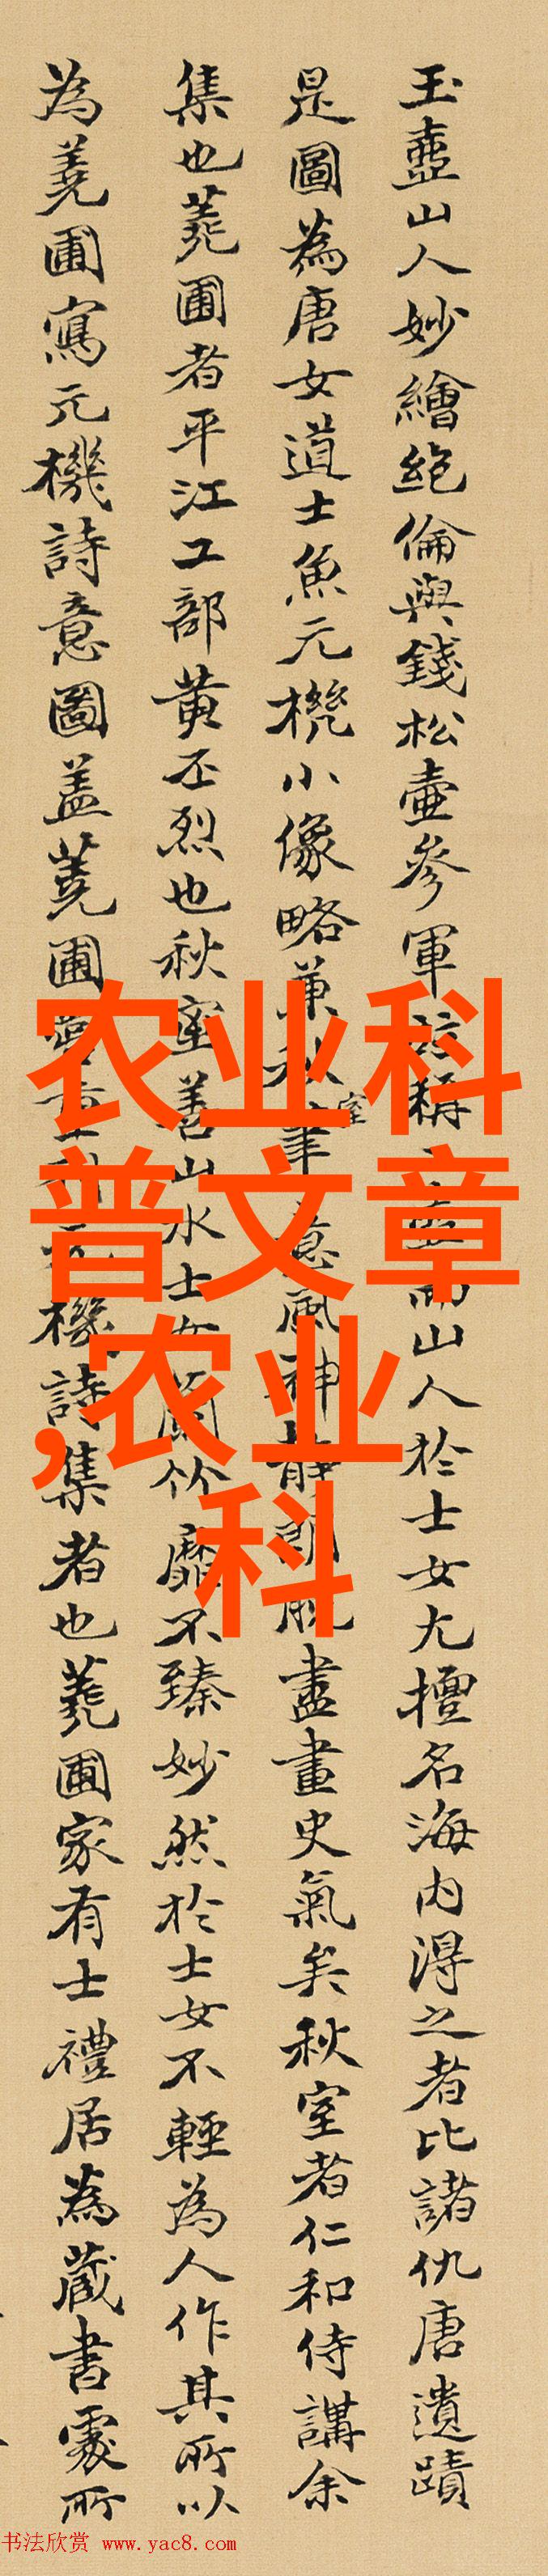 玉壺山人妙繪絶倫與錢松壺參軍
山人於士女尤擅名海内得之者比諸仇唐遺蹟
是圖為唐女道士魚元機小像略兼秋室筆意風神靜
盡畫史氣矣秋室者仁和侍講余
集也蕘圃者平江工部黄丕烈也秋室善山水士女蘭竹靡不臻妙然於士女不輕為人作其所以
為蕘圃寫元機詩意圖盖蕘圃
機詩集者也蕘圃家有士禮居為藏書處所
农业科
普文章
,农业
科
书法欣赏 www.yac8.com